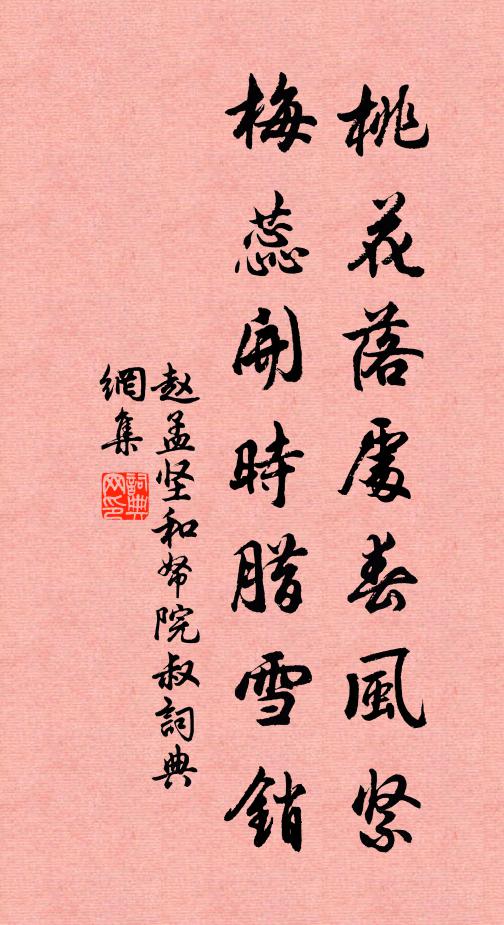 桃花落處春風紧
梅蕊開時腊雪銷
赵孟坚和帑院叔詞典
網集
詞典
网印